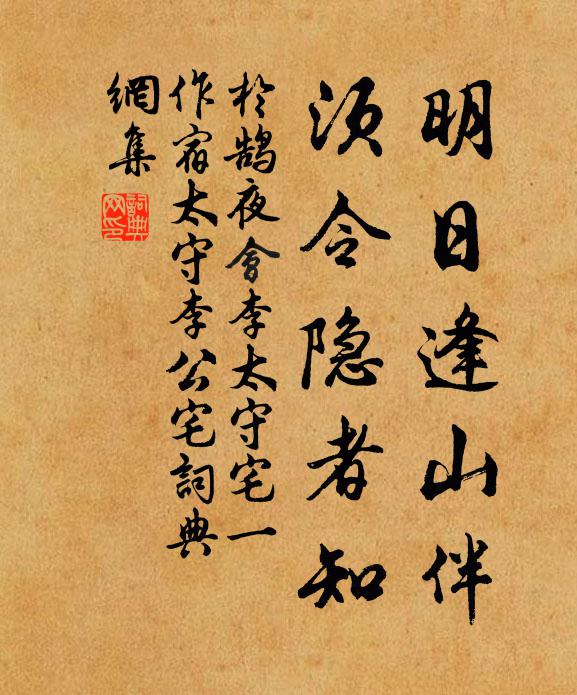 明日逢山伴
须令隐者知
於鹄夜會李太守宅一
作宿太守李公宅詞典
網集
詞典网印